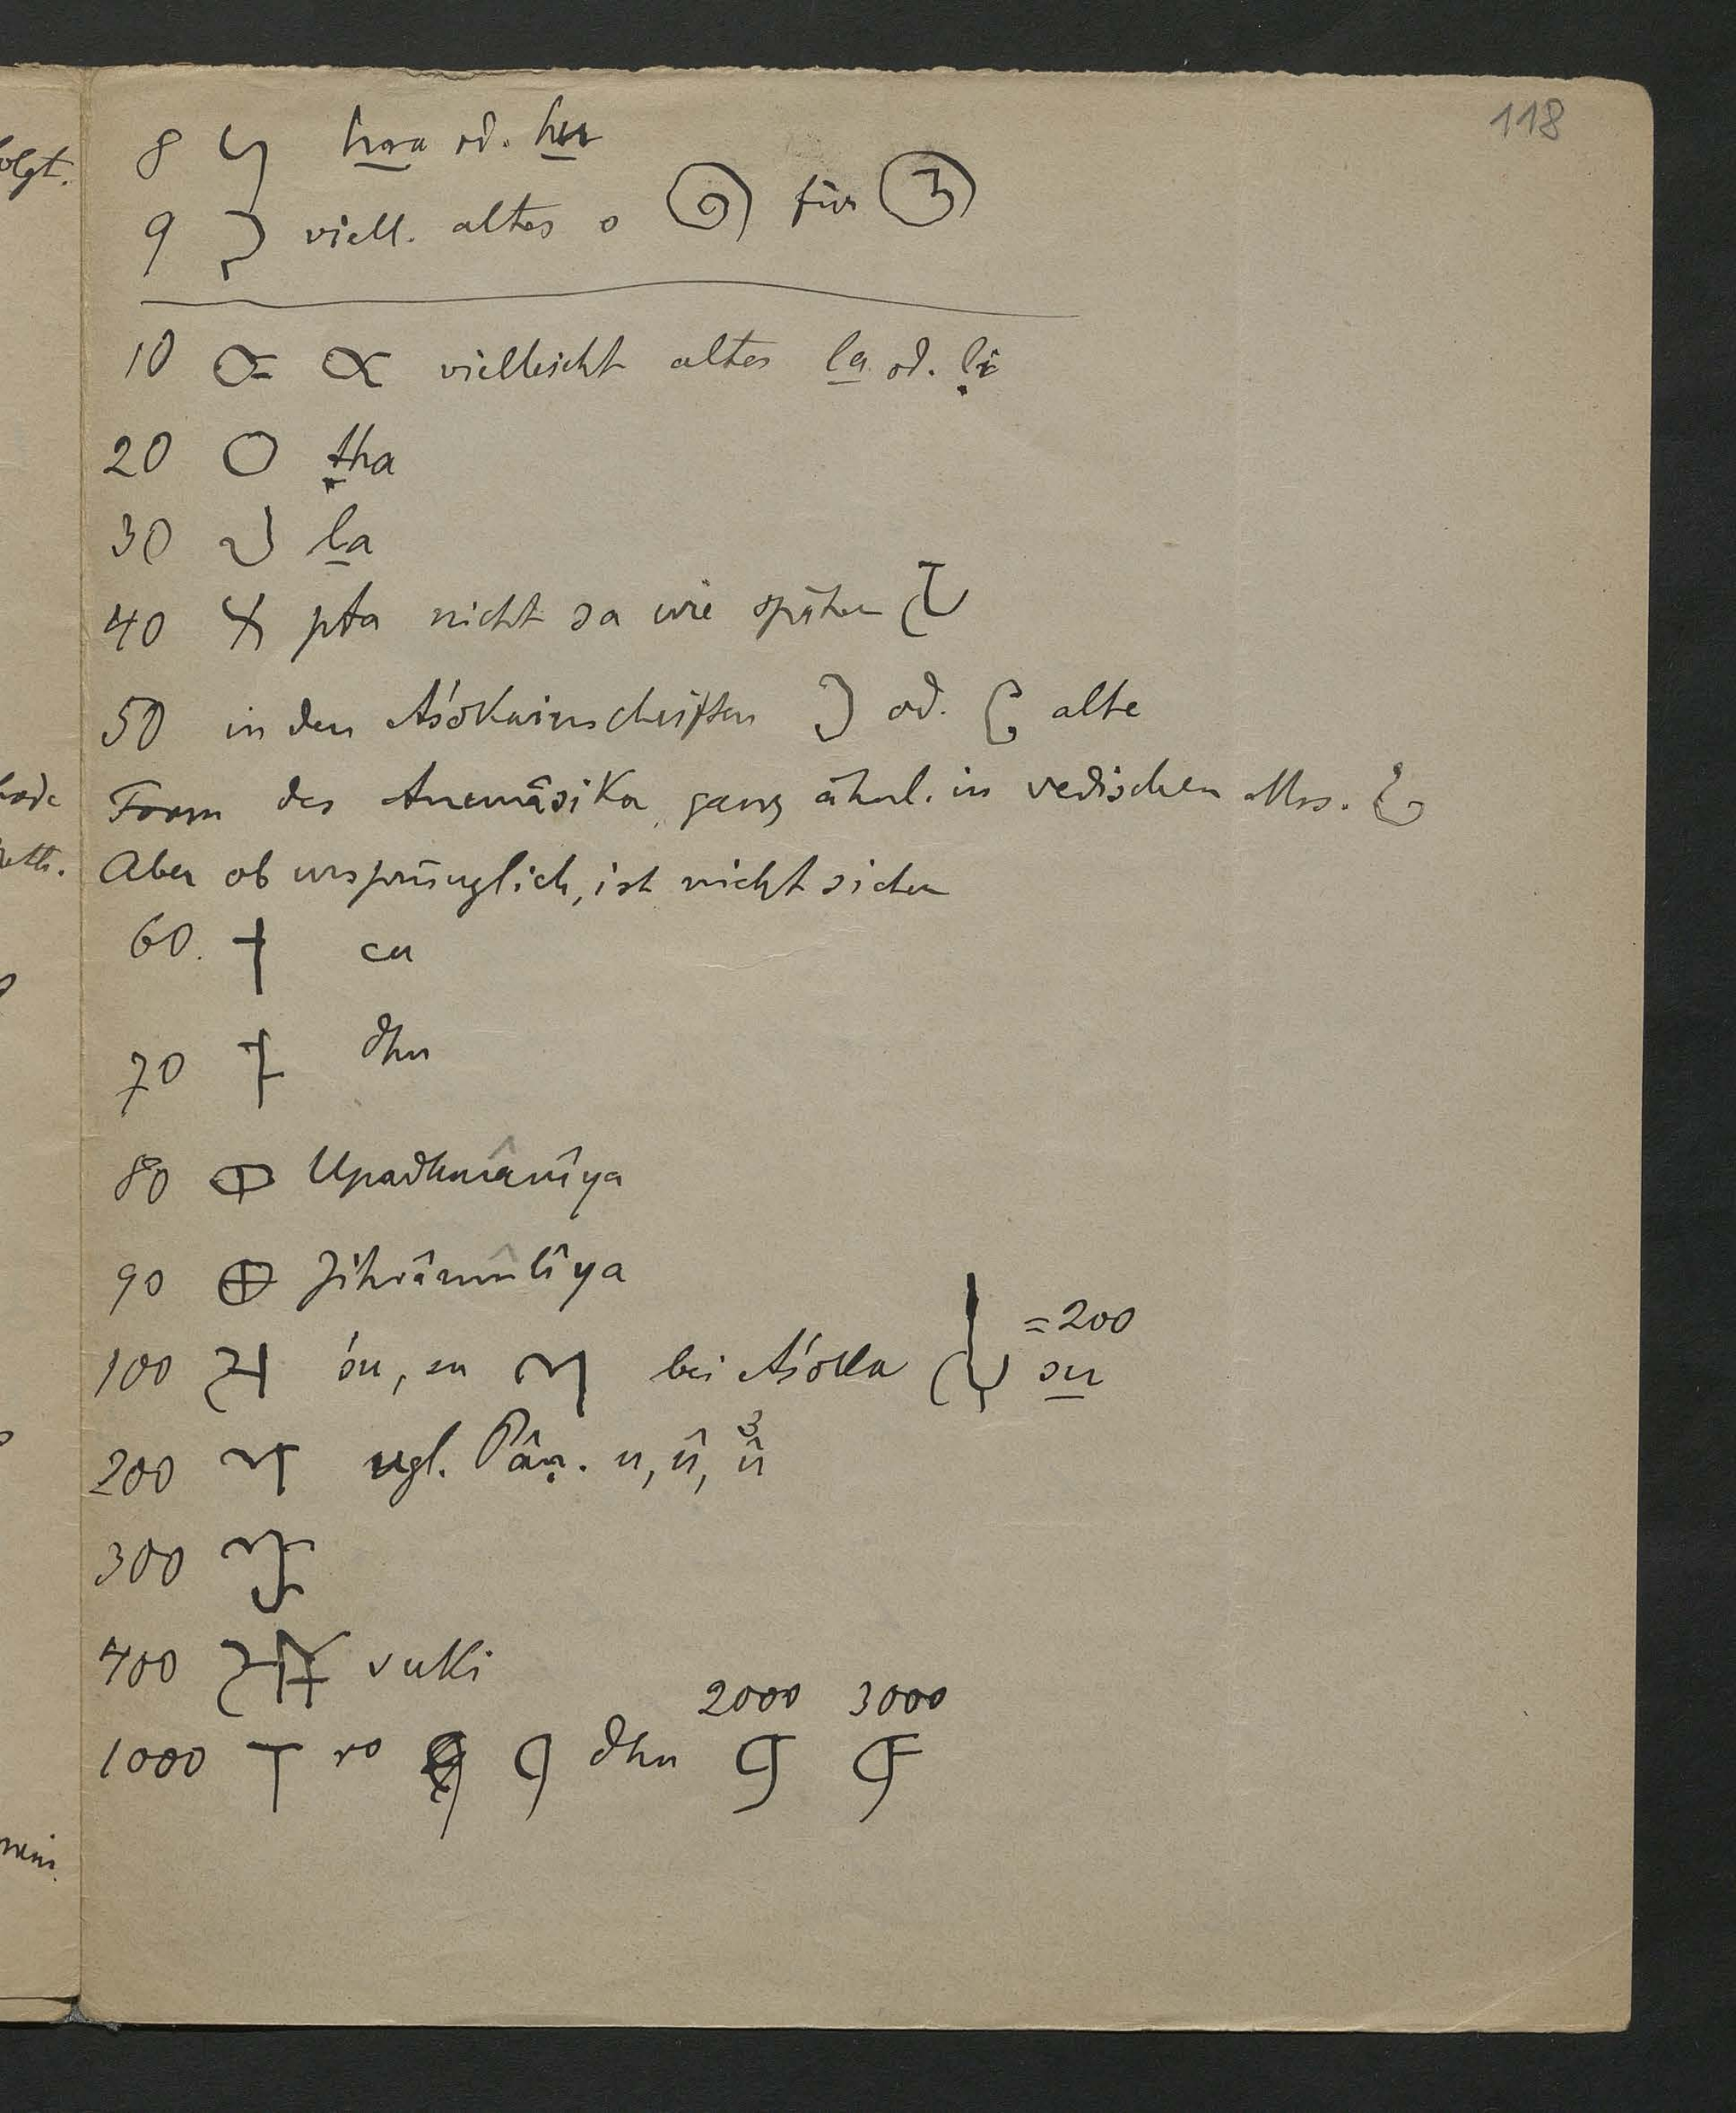 118
8 hra od. hu
9 viell. altes o für
10 vielleicht altes la od. ḷi
20 ṭha
30 la
40 pta nicht sa wie später
50 in den Aśokainschriften od. alte
Form des Anunâsika, ganz ähnl. in vedischen Mss.
Aber ob ursprünglich, ist nicht sicher
60. cu
70 dhu
80 Upadhmânîya
90 Jihvâmûlîya
= 200
100 śu, su bei Aśoka su
200 vgl. Pâṇ. u, û, û3
300
400 suki
2000 3000
1000 ro dhu